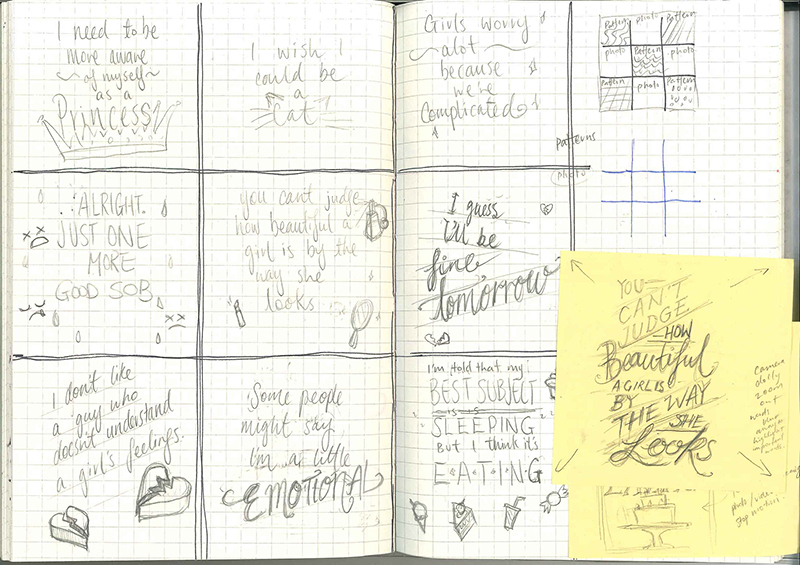 I need to be
more aware
of myself
as a
Princess
I wish I
could be
a
Cat
Girls worry
alot
because
we're
complicated
Pattern photo Pattern
photo Pattern photo
Pattern photo Pattern
Patterns
photo
ALRIGHT.
JUST ONE
MORE
GOOD SOB
you can't judge
how beautiful a
girl is by the
way she
looks
I guess
I'll be
fine
tomorrow
I don't like
a guy who
doesn't understand
a girl's feelings.
Some people
might say
I'm a little
EMOTIONAL
I'm told that my
BEST SUBJECT
IS
SLEEPING
But I think it's
E·A·T·I·N·G
YOU
CAN'T
JUDGE
HOW
Beautiful
A GIRL IS
BY
THE WAY
SHE
Looks
camera
zoom
out
words
photo